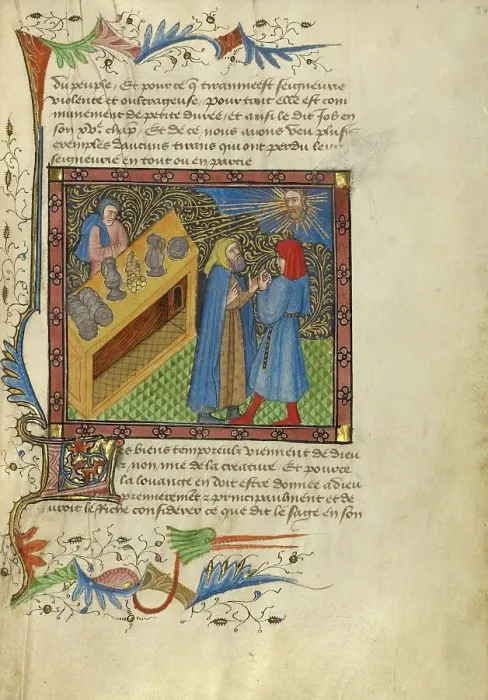 du peuple / Et pource q̄ tirannie est seigneurie
violente et oultrageuse / pour tant elle est com
munement de petite duree / et ansi le dit Job en
son xvͤ chap / Et de ce nous auons veu plusˢ
exemples daucuns tirans qui ont perdu leur
seigneurie en tout ou en partie
Les biens temporeulz viennent de dieu
et non mie de la creature / Et pource
la louange en doit estre donnee a dieu
premierement et principaulment et de
uroit le riche considerer ce que dit le sage en son